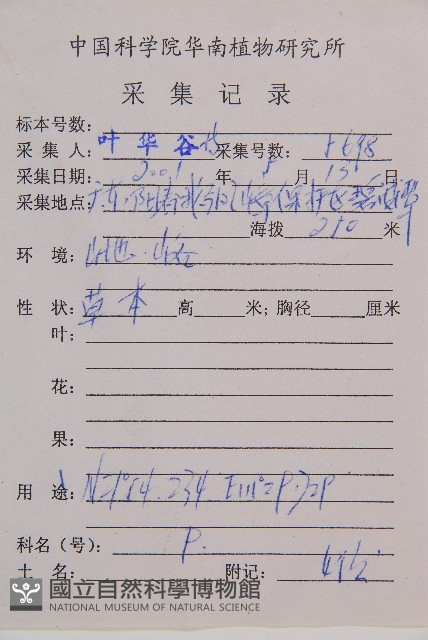 中国科学院华南植物研究所
采 集 记 录
标本号数：
采 集 人：叶华谷 采集号数：5698
采集日期：2001 年 5 月 15 日
采集地点：广东·阳春
海拨 210 米
环 境：山地·山谷
性 状：草本 高 米；胸径 厘米
叶：
花：
果：
用 途：
科名（号）： P.
土 名： 附记：
國立自然科學博物館
NATIONAL MUSEUM OF NATURAL SCIENCE